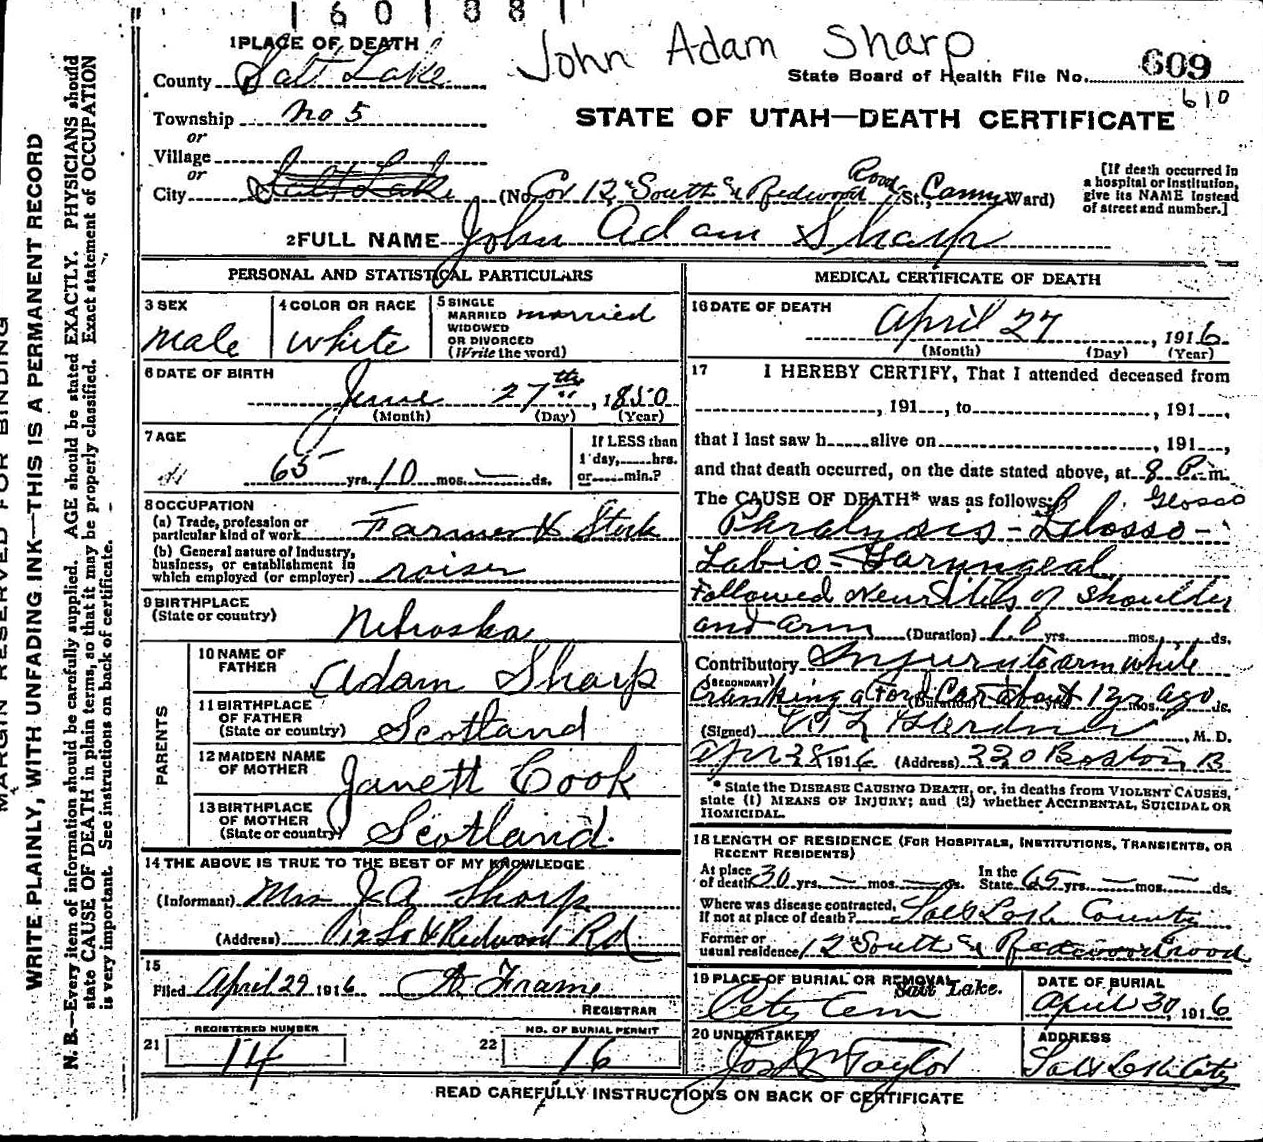 160188
John Adam Sharp
1 PLACE OF DEATH
County Salt Lake
State Board of Health File No. 609
610
Township No 5
or
Village
or
City Salt Lake
STATE OF UTAH—DEATH CERTIFICATE
(No. Cor 12" South & Redwood Road St., Ward)
[If death occurred in
a hospital or institution,
give its NAME instead
of street and number.]
2 FULL NAME John Adam Sharp
PERSONAL AND STATISTICAL PARTICULARS
3 SEX
Male
4 COLOR OR RACE
White
5 SINGLE
MARRIED married
WIDOWED
OR DIVORCED
(Write the word)
6 DATE OF BIRTH
June 27th, 1850
(Month) (Day) (Year)
7 AGE
65 yrs. 10 mos. — ds.
If LESS than
1 day,......hrs.
or......min.?
8 OCCUPATION
(a) Trade, profession or
particular kind of work Farmer & Stock
(b) General nature of Industry,
business, or establishment in
which employed (or employer) raiser
9 BIRTHPLACE
(State or country) Nebraska
PARENTS
10 NAME OF
FATHER Adam Sharp
11 BIRTHPLACE
OF FATHER
(State or country) Scotland
12 MAIDEN NAME
OF MOTHER Janett Cook
13 BIRTHPLACE
OF MOTHER
(State or country) Scotland.
14 THE ABOVE IS TRUE TO THE BEST OF MY KNOWLEDGE
(Informant) Mrs J. A. Sharp
(Address) 12 So & Redwood Rd
15
Filed April 29 1916 Frame
REGISTRAR
21 REGISTERED NUMBER
14
22 NO. OF BURIAL PERMIT
16
MEDICAL CERTIFICATE OF DEATH
16 DATE OF DEATH
April 27, 1916
(Month) (Day) (Year)
17 I HEREBY CERTIFY, That I attended deceased from
, 191 , to , 191 ,
that I last saw h alive on , 191 ,
and that death occurred, on the date stated above, at 8 P. m.
The CAUSE OF DEATH* was as follows: Glosso
Paralysis - Glosso -
Labio - Laryngeal
Followed Neuritis of Shoulder
and arm (Duration) yrs. mos. ds.
Contributory Injury to arm while
(SECONDARY)
Cranking a Ford Car about 12 ago
(Duration) yrs. mos. ds.
(Signed) , M. D.
Apr 28 1916 (Address) 220 Boston B
* State the DISEASE CAUSING DEATH, or, in deaths from VIOLENT CAUSES,
state (1) MEANS OF INJURY; and (2) whether ACCIDENTAL, SUICIDAL OR
HOMICIDAL.
18 LENGTH OF RESIDENCE (FOR HOSPITALS, INSTITUTIONS, TRANSIENTS, OR
RECENT RESIDENTS)
At place
of death 30 yrs. — mos. — ds. In the
State 65 yrs. — mos. — ds.
Where was disease contracted,
if not at place of death? Salt Lake County
Former or
usual residence 12" South & Redwood road
19 PLACE OF BURIAL OR REMOVAL
Salt Lake.
City Cem
DATE OF BURIAL
April 30, 1916
20 UNDERTAKER
Jos Wm Taylor
ADDRESS
Salt Lake City
READ CAREFULLY INSTRUCTIONS ON BACK OF CERTIFICATE
MARGIN RESERVED FOR BINDING
WRITE PLAINLY, WITH UNFADING INK—THIS IS A PERMANENT RECORD
N. B.—Every item of information should be carefully supplied. AGE should be stated EXACTLY. PHYSICIANS should
state CAUSE OF DEATH in plain terms, so that it may be properly classified. Exact statement of OCCUPATION
is very important. See instructions on back of certificate.